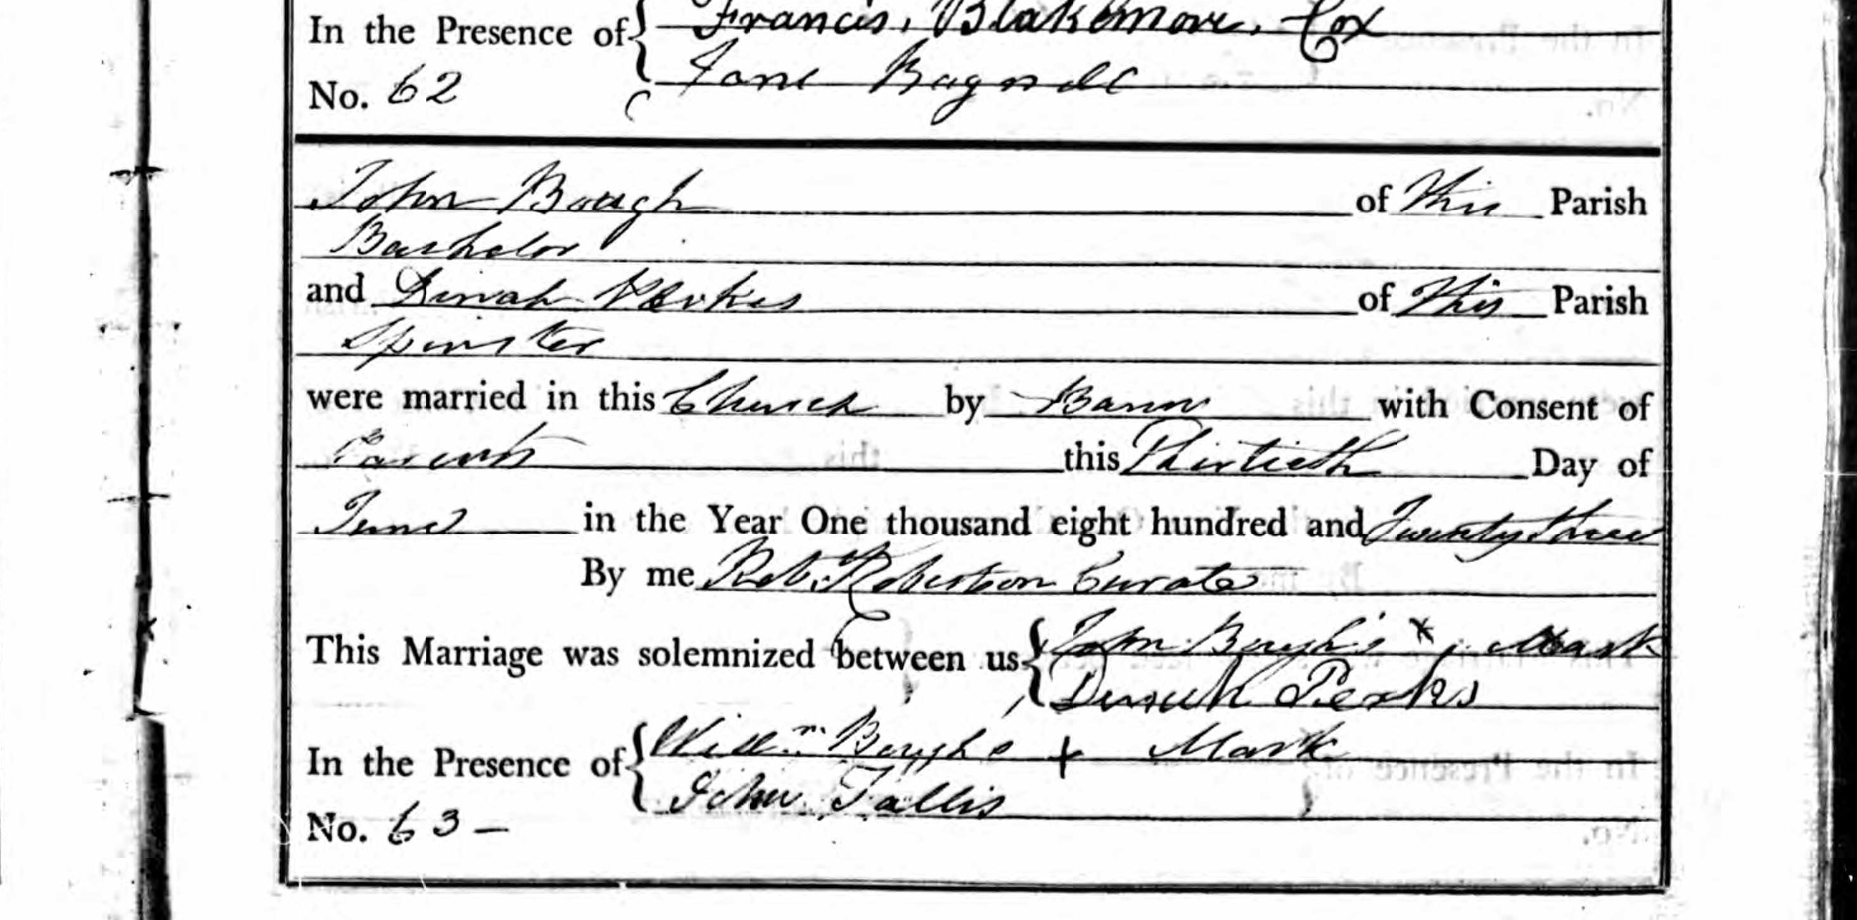 In the Presence of { Francis, Blakemore, Cox
Jane Bagnell
No. 62
John Bough of this Parish
Bachelor
and Dinah Perkes of this Parish
Spinster
were married in this Church by Banns with Consent of
Parents this Thirtieth Day of
June in the Year One thousand eight hundred and Twenty three
By me Rob. Robertson Curate
This Marriage was solemnized between us { John Bough's x Mark
Dinah Perks
In the Presence of { Willm Bough's + Mark
John Tallis
No. 63 –